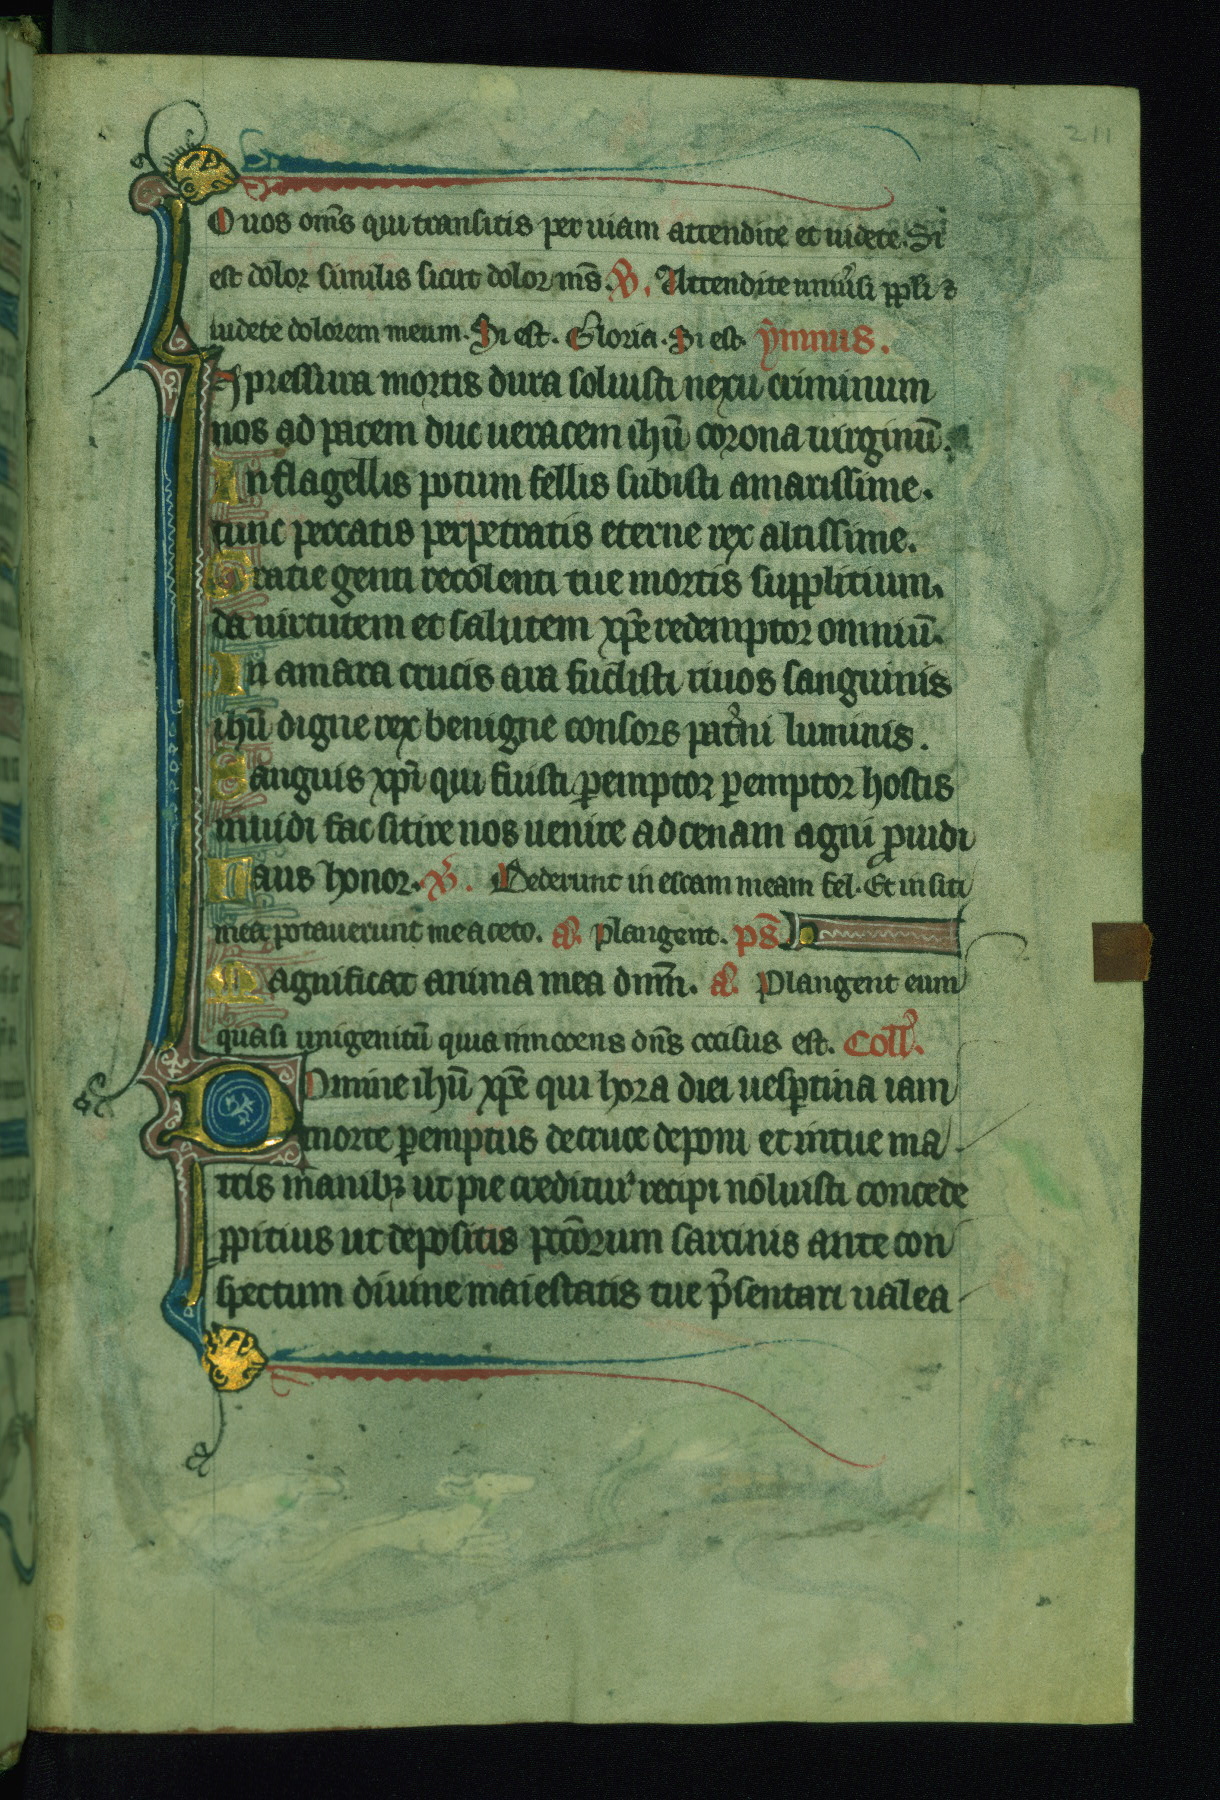 211
O uos om̄s qui transitis per uiam attendite et uidete. Si
est dolor similis sicut dolor m̄s. V̄. Attendite uniũsi ppli ⁊
uidete dolorem meum. Si est. Gloria. Si est. ẏmnus.
Qi pressura mortis dura soluisti nexu criminum
nos ad pacem duc ueracem ihū corona uirginū.
In flagellis potum fellis subisti amarissime.
tunc peccatis perpetratis eterne rex altissime.
Gratie genti recolenti tue mortis supplicium.
da uirtutem et salutem xp̄e redemptor omniū.
In amara crucis ara fudisti riuos sanguinis
ihū digne rex benigne consors pat̾ni luminis.
Sanguis xp̄i qui fuisti ꝑemptor ꝑemptor hostis
inuidi fac sitire nos uenire ad cenam agni ꝓuidi
Laus honor. V̄. Dederunt in escam meam fel. Et in siti
mea potauerunt me aceto. a. Plangent. ps̄
Magnificat anima mea dm̄m. a. Plangent eum
quasi unigenitū quia innocens dn̄s occisus est. Coll̾.
Domine ihū xp̄e qui hora diei uesꝑtina iam
morte ꝑemptus de cruce deponi et in tue ma
tris manibꝫ ut pie creditur̾ recipi noluisti concede
ppitius ut depositis pccōrum sarcinis ante con
spectum diuine maiestatis tue p̄sentari ualea